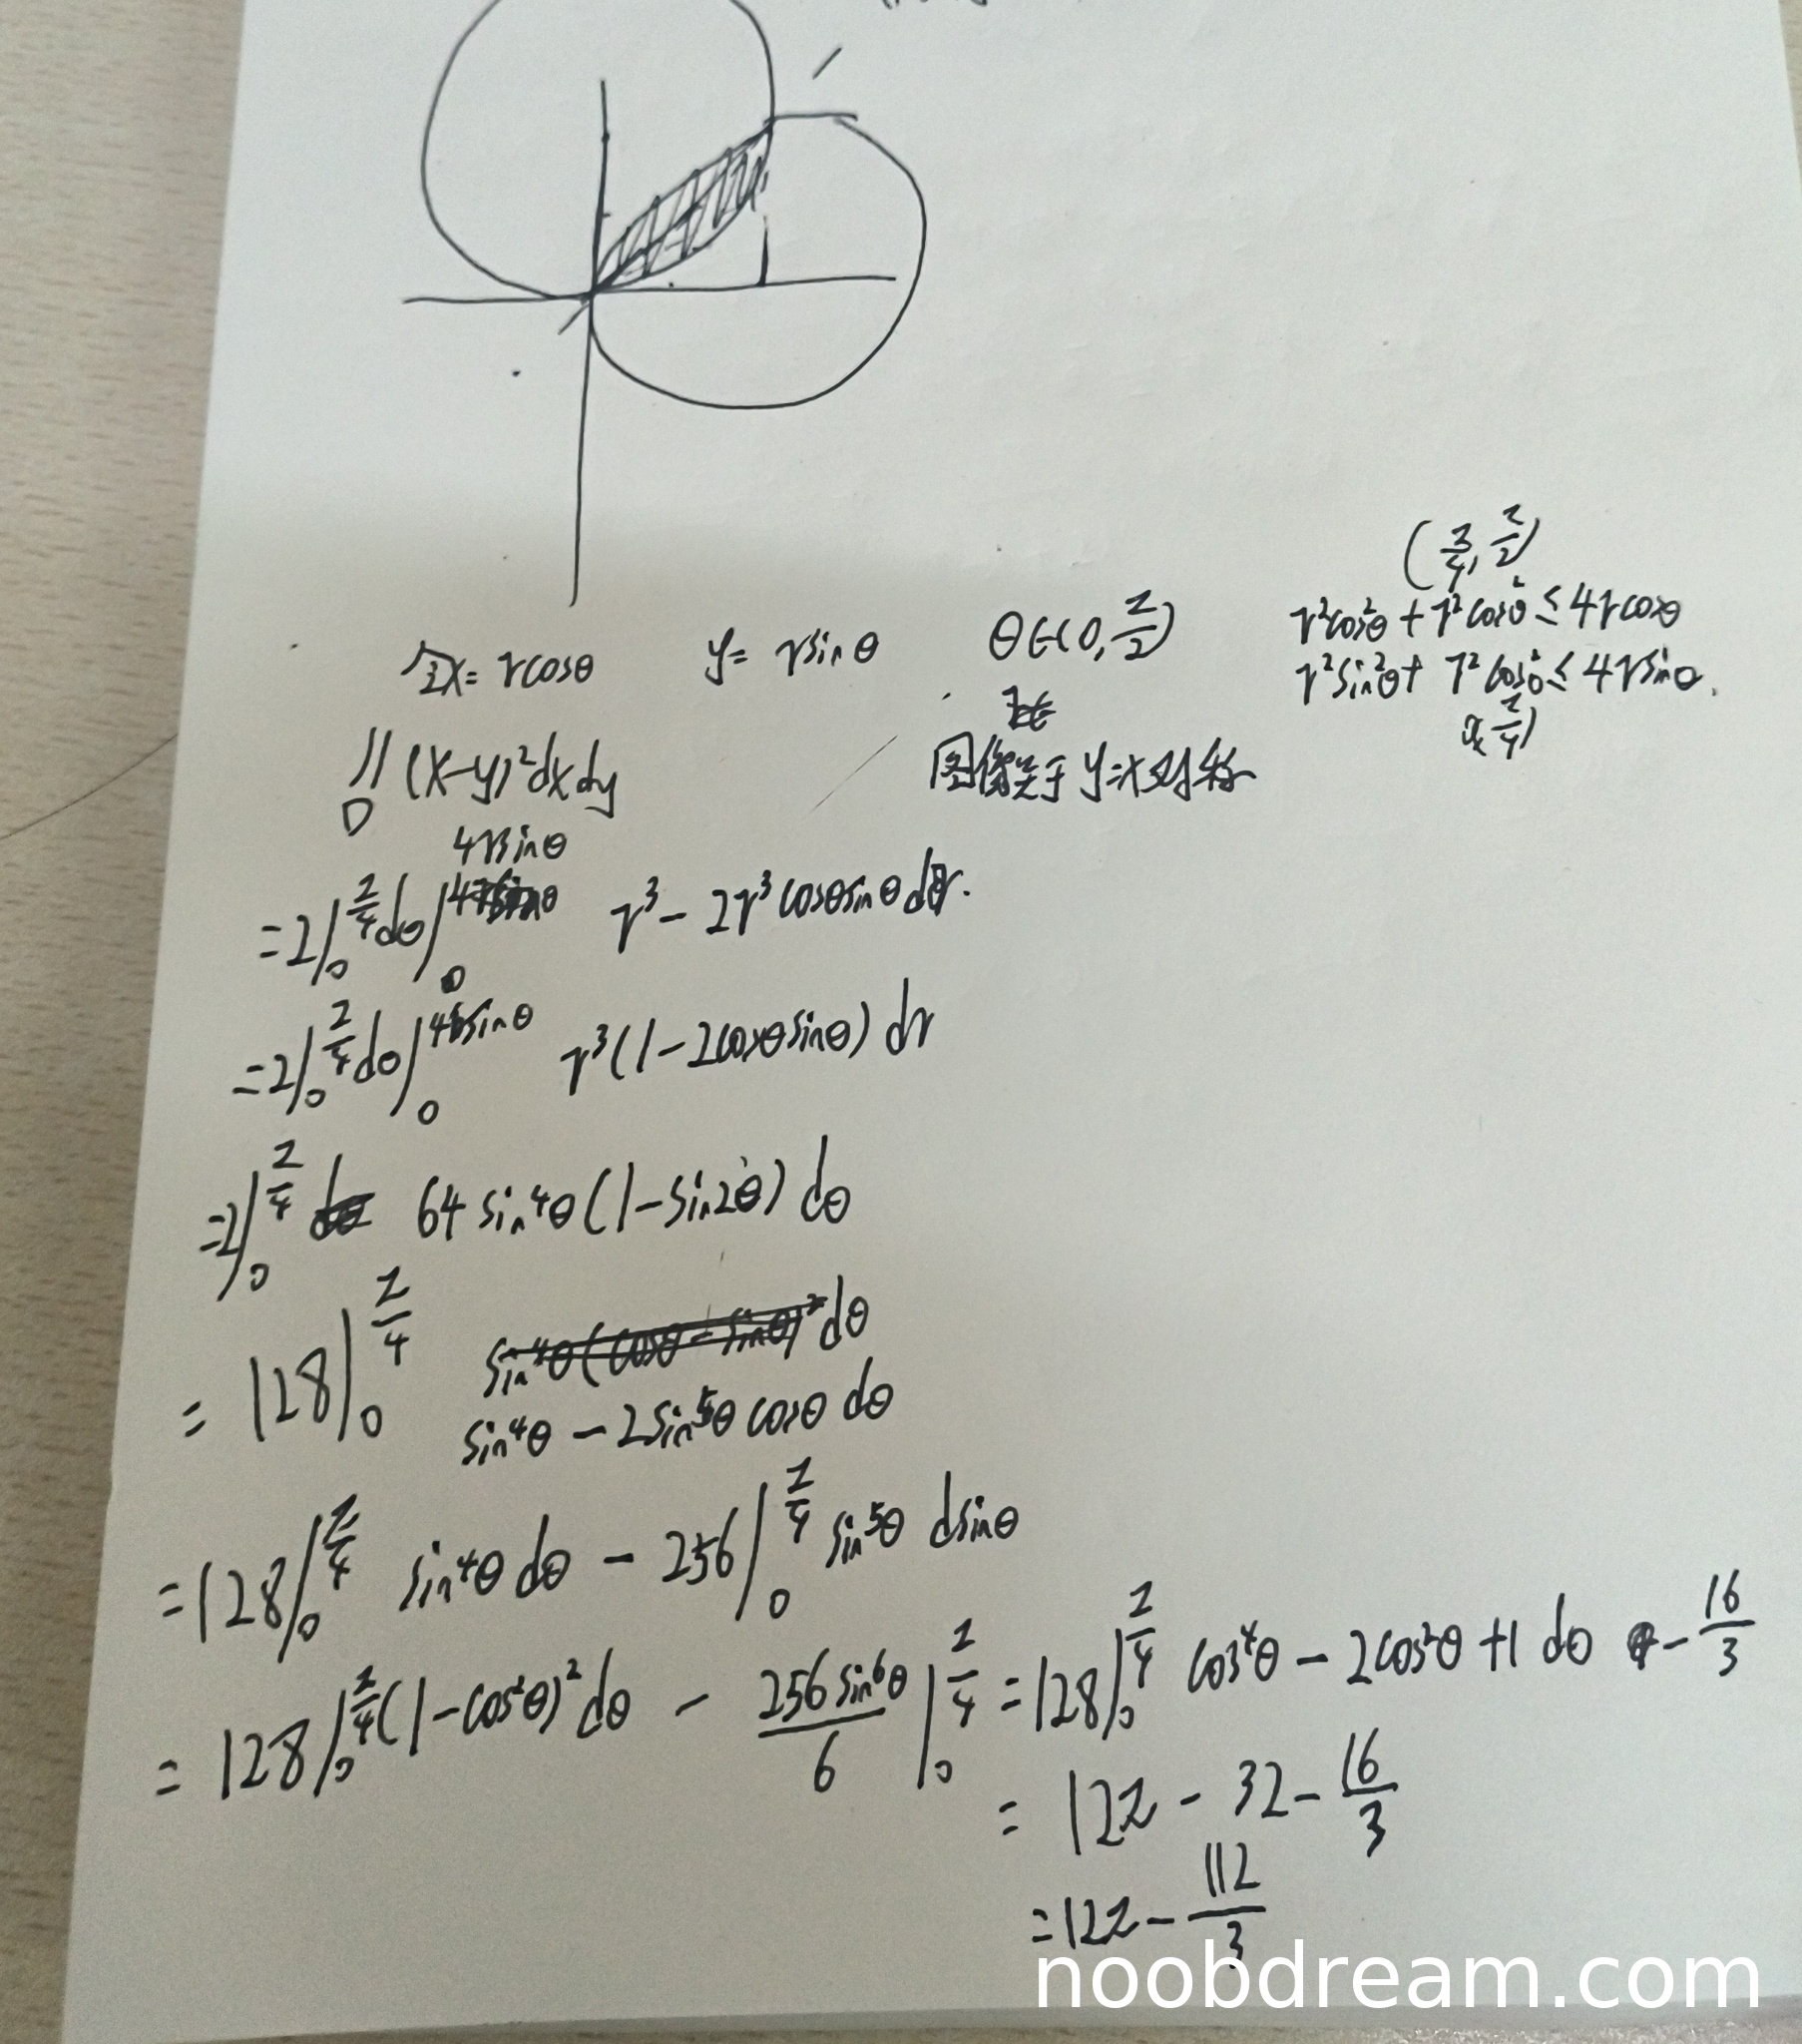 (π/4, π/2)
r²cos²θ + r²cos²θ ≤ 4rcosθ
令x = rcosθ y = rsinθ θ∈(0, π/2)
r²sin²θ + r²cos²θ ≤ 4rsinθ.
π/4)
图像关于 y=x对称
∬_D (x-y)²dxdy
4rsinθ
=2∫_0^{π/4}dθ∫_0 r³ - 2r³cosθsinθ dr.
=2∫_0^{π/4}dθ∫_0^{4sinθ} r³(1-2cosθsinθ) dr
=2∫_0^{π/4} 64 sin⁴θ(1-sin2θ) dθ
= 128∫_0^{π/4} sin⁴θ(cosθ-sinθ)² dθ
sin⁴θ - 2sin⁵θ cosθ dθ
=128∫_0^{π/4} sin⁴θ dθ - 256∫_0^{π/4} sin⁵θ dsinθ
= 128∫_0^{π/4}(1-cos²θ)²dθ - 256sin⁶θ/6 |_0^{π/4} =128∫_0^{π/4} cos⁴θ - 2cos²θ +1 dθ - 16/3
= 12π - 32 - 16/3
=12π - 112/3
noobdream.com